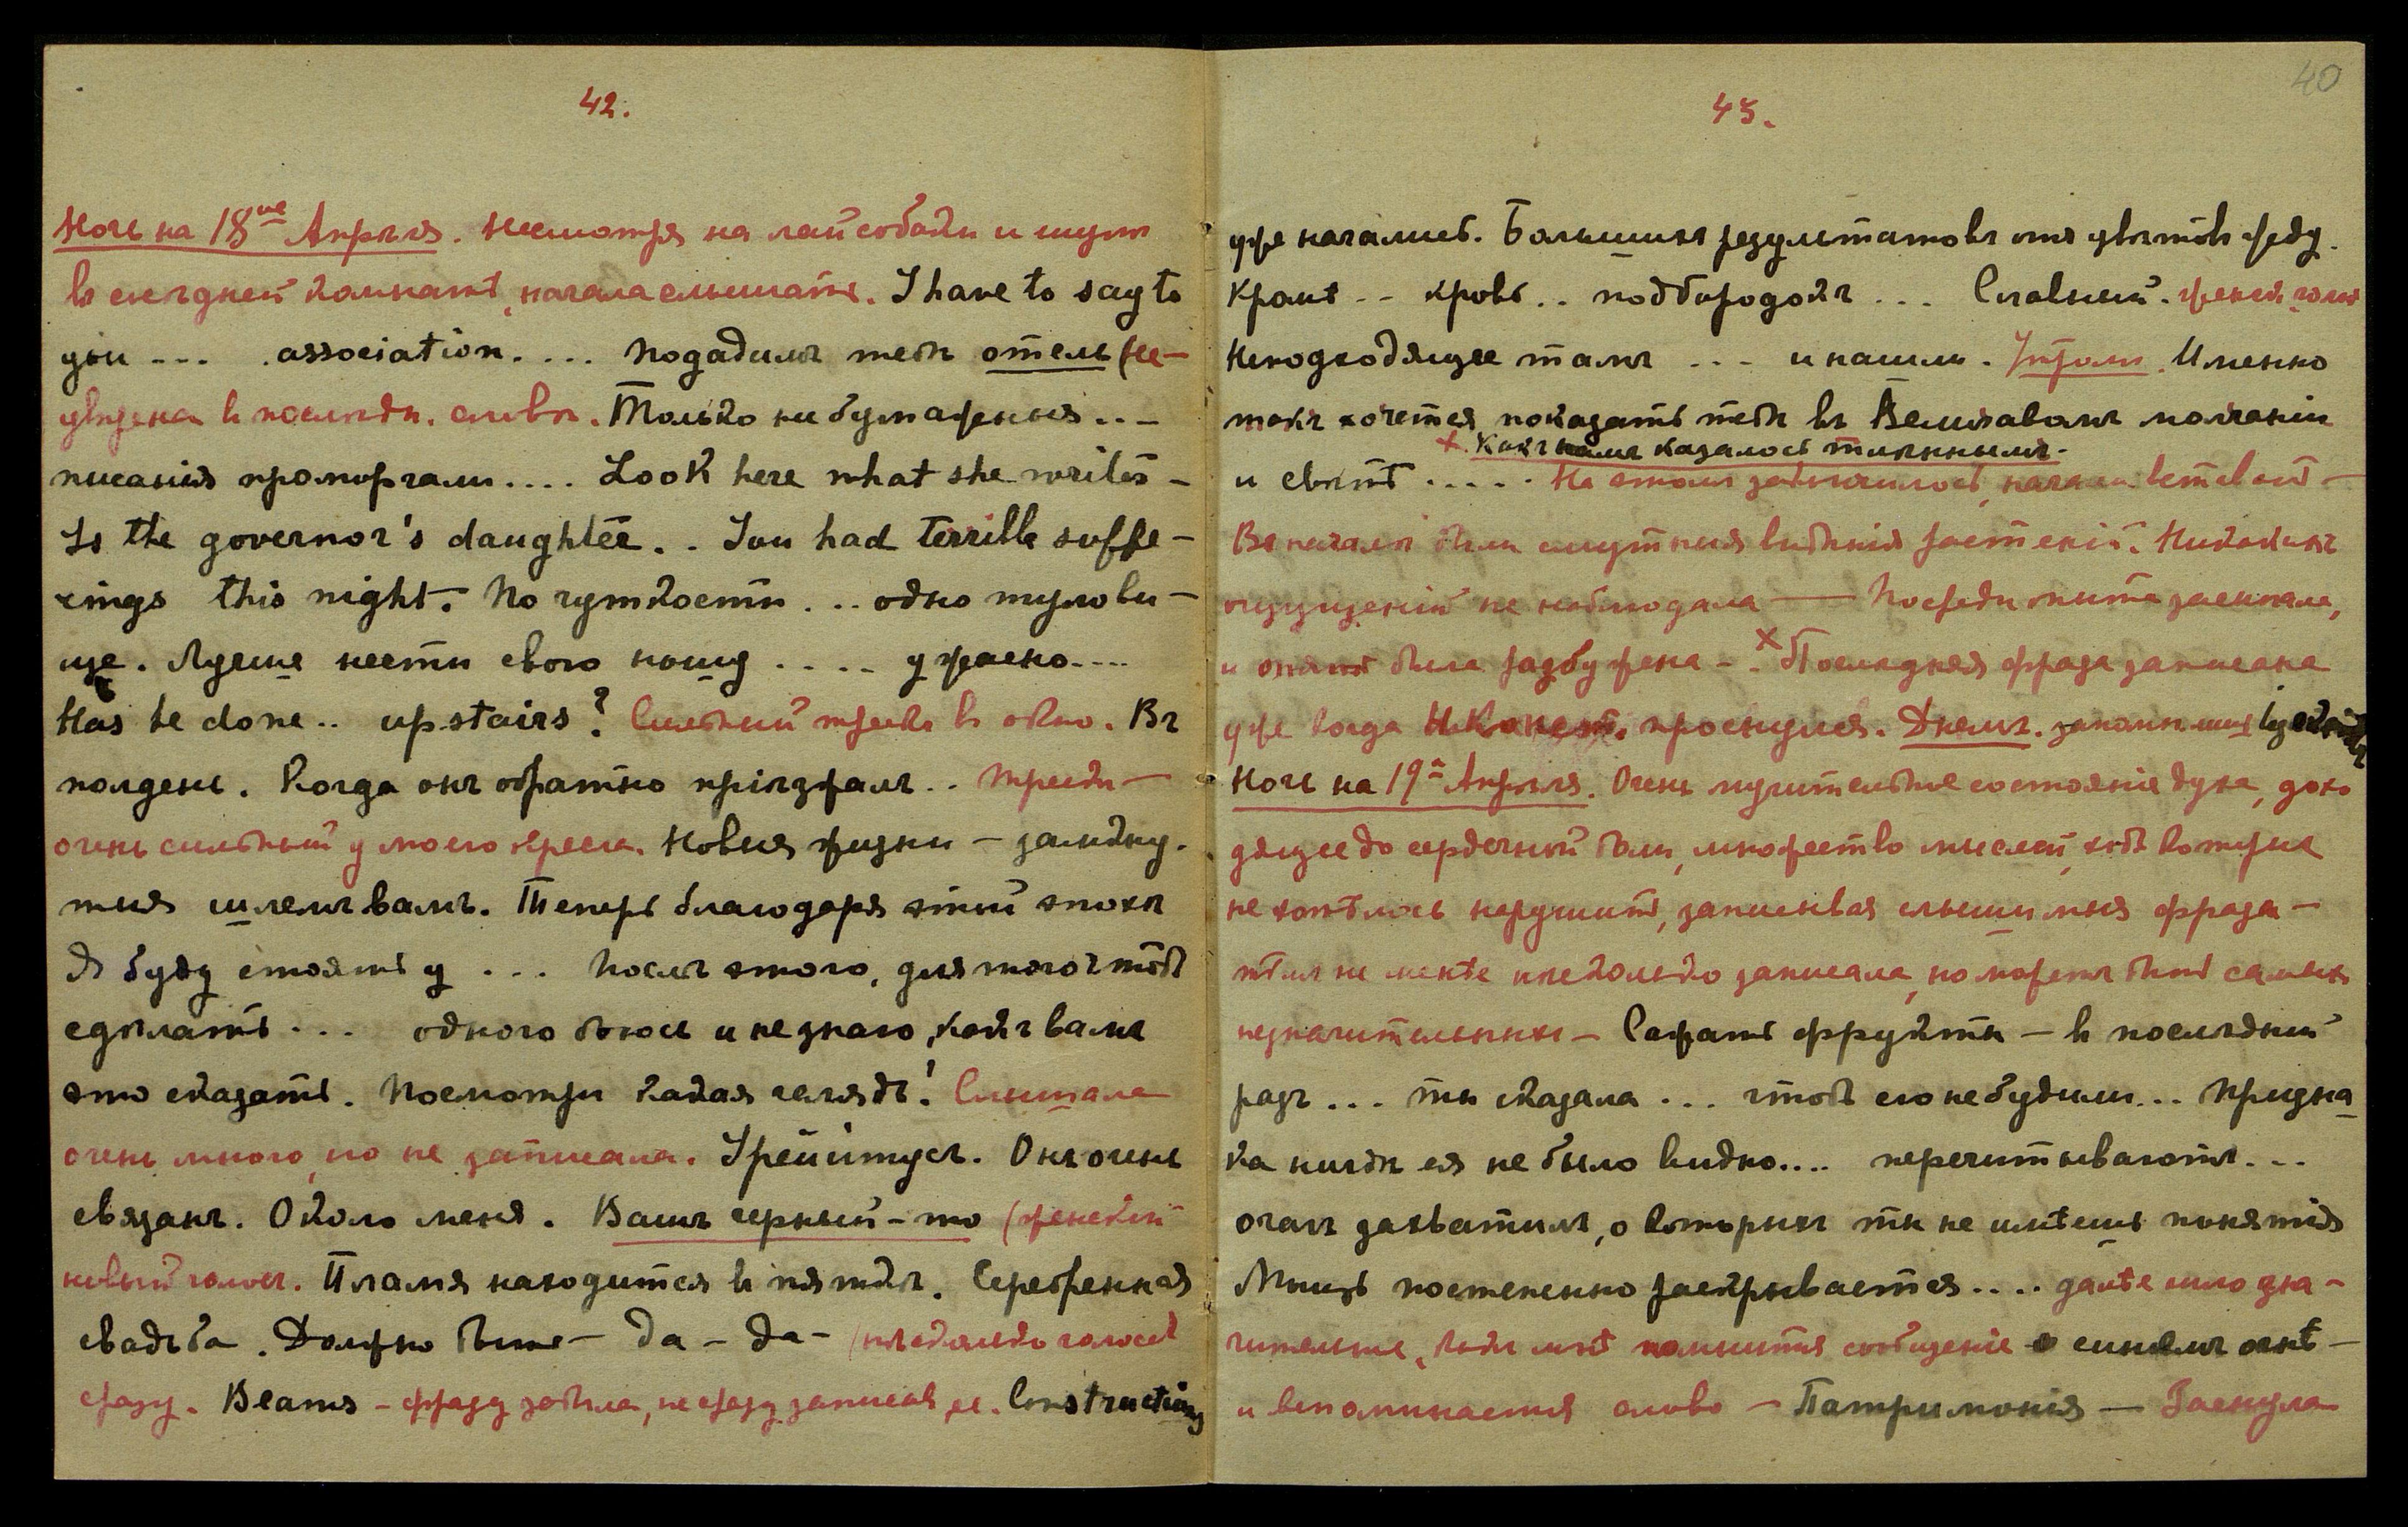 42.
Ночь на 18ое Апрѣля. Несмотря на лай собаки и шумъ
въ сосѣдней комнатѣ, начала слышать. I have to say to
you --- association.... Подадимъ тебѣ отель (не-
увѣрена въ послѣдн. словѣ. Только не бумажныя ...
писанія промокгали .... Look here what she writes –
Is the governor's daughter .. You had terrible suffe-
rings this night. По чуткости ... одно тулови-
ще. Лучше нести свою ношу .... ужасно....
Has he done .. upstairs? Сильный трескъ въ окно. Въ
полдень. Когда онъ обратно пріѣзжалъ .. Трескъ –
очень сильный у моего кресла. Новыя жизни – замкну-
тыя шлемъ вамъ. Теперь благодаря этой эпохѣ
Я буду стоять у ... Послѣ этого, для того чтобъ
сдѣлать ... одного боюсь и не знаю, какъ вамъ
это сказать. Посмотри какая челядь! Слышала
очень много, но не записала. Онъ очень
связанъ. Около меня. Вашъ черный-то (женскій
новый голосъ. Пламя находится въ пяткѣ. Серебренная
свадьба. Должно быть – да – да – (нѣсколько голосовъ
сразу. – фразу забыла, не сразу записавъ ее. Constructions
40
43.
уже начались. Большихъ результатовъ отъ цвѣтовъ жду.
Кроить -- кровь .. подбородокъ ... Славный. женск. голос
Неподходящее тамъ ... и нашли. Утромъ. Именно
такъ хочется показать тебѣ въ молчаніи
+. Какъ намъ казалось тлѣннымъ.
и свѣтѣ ..... На этомъ закончилось, начала вставать –
Въ началѣ были смутныя видѣнія растеній. Никакихъ
ощущеній не наблюдала –– Посреди опыта заснула,
и опять была разбужена –. х Послѣдняя фраза записана
уже когда проснулся. Днемъ.
Ночь на 19ое Апрѣля. Очень мучительное состояніе духа, дохо
дящее до сердечной боли, множество мыслей, которыя
не хотѣлось нарушить, записывая слышимыя фразы –
тѣмъ не менѣе нѣсколько записала, но можетъ быть самыхъ
незначительныхъ – Сажать фрукты – въ послѣдній
разъ ... ты сказала ... чтобъ его не будили... Призна
ка нигдѣ ея не было видно.... перечитываютъ...
очагъ захватилъ, о которыхъ ты не имѣешь понятія
Мощь постепенно раскрывается.... далѣе шло зна-
чительное, гдѣ мнѣ помнится сообщеніе о синемъ огнѣ –
и вспоминается слово – Патримонія – Заснула